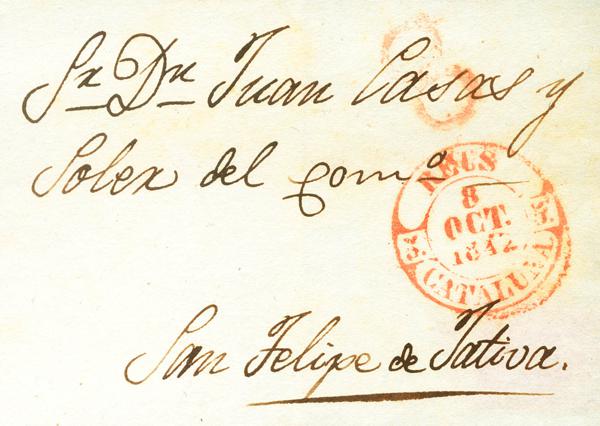 Sr. Dn. Juan Casas y
Soler del Comº
REUS
8
OCT.
1842
CATALUÑA
San Felipe de Jativa.